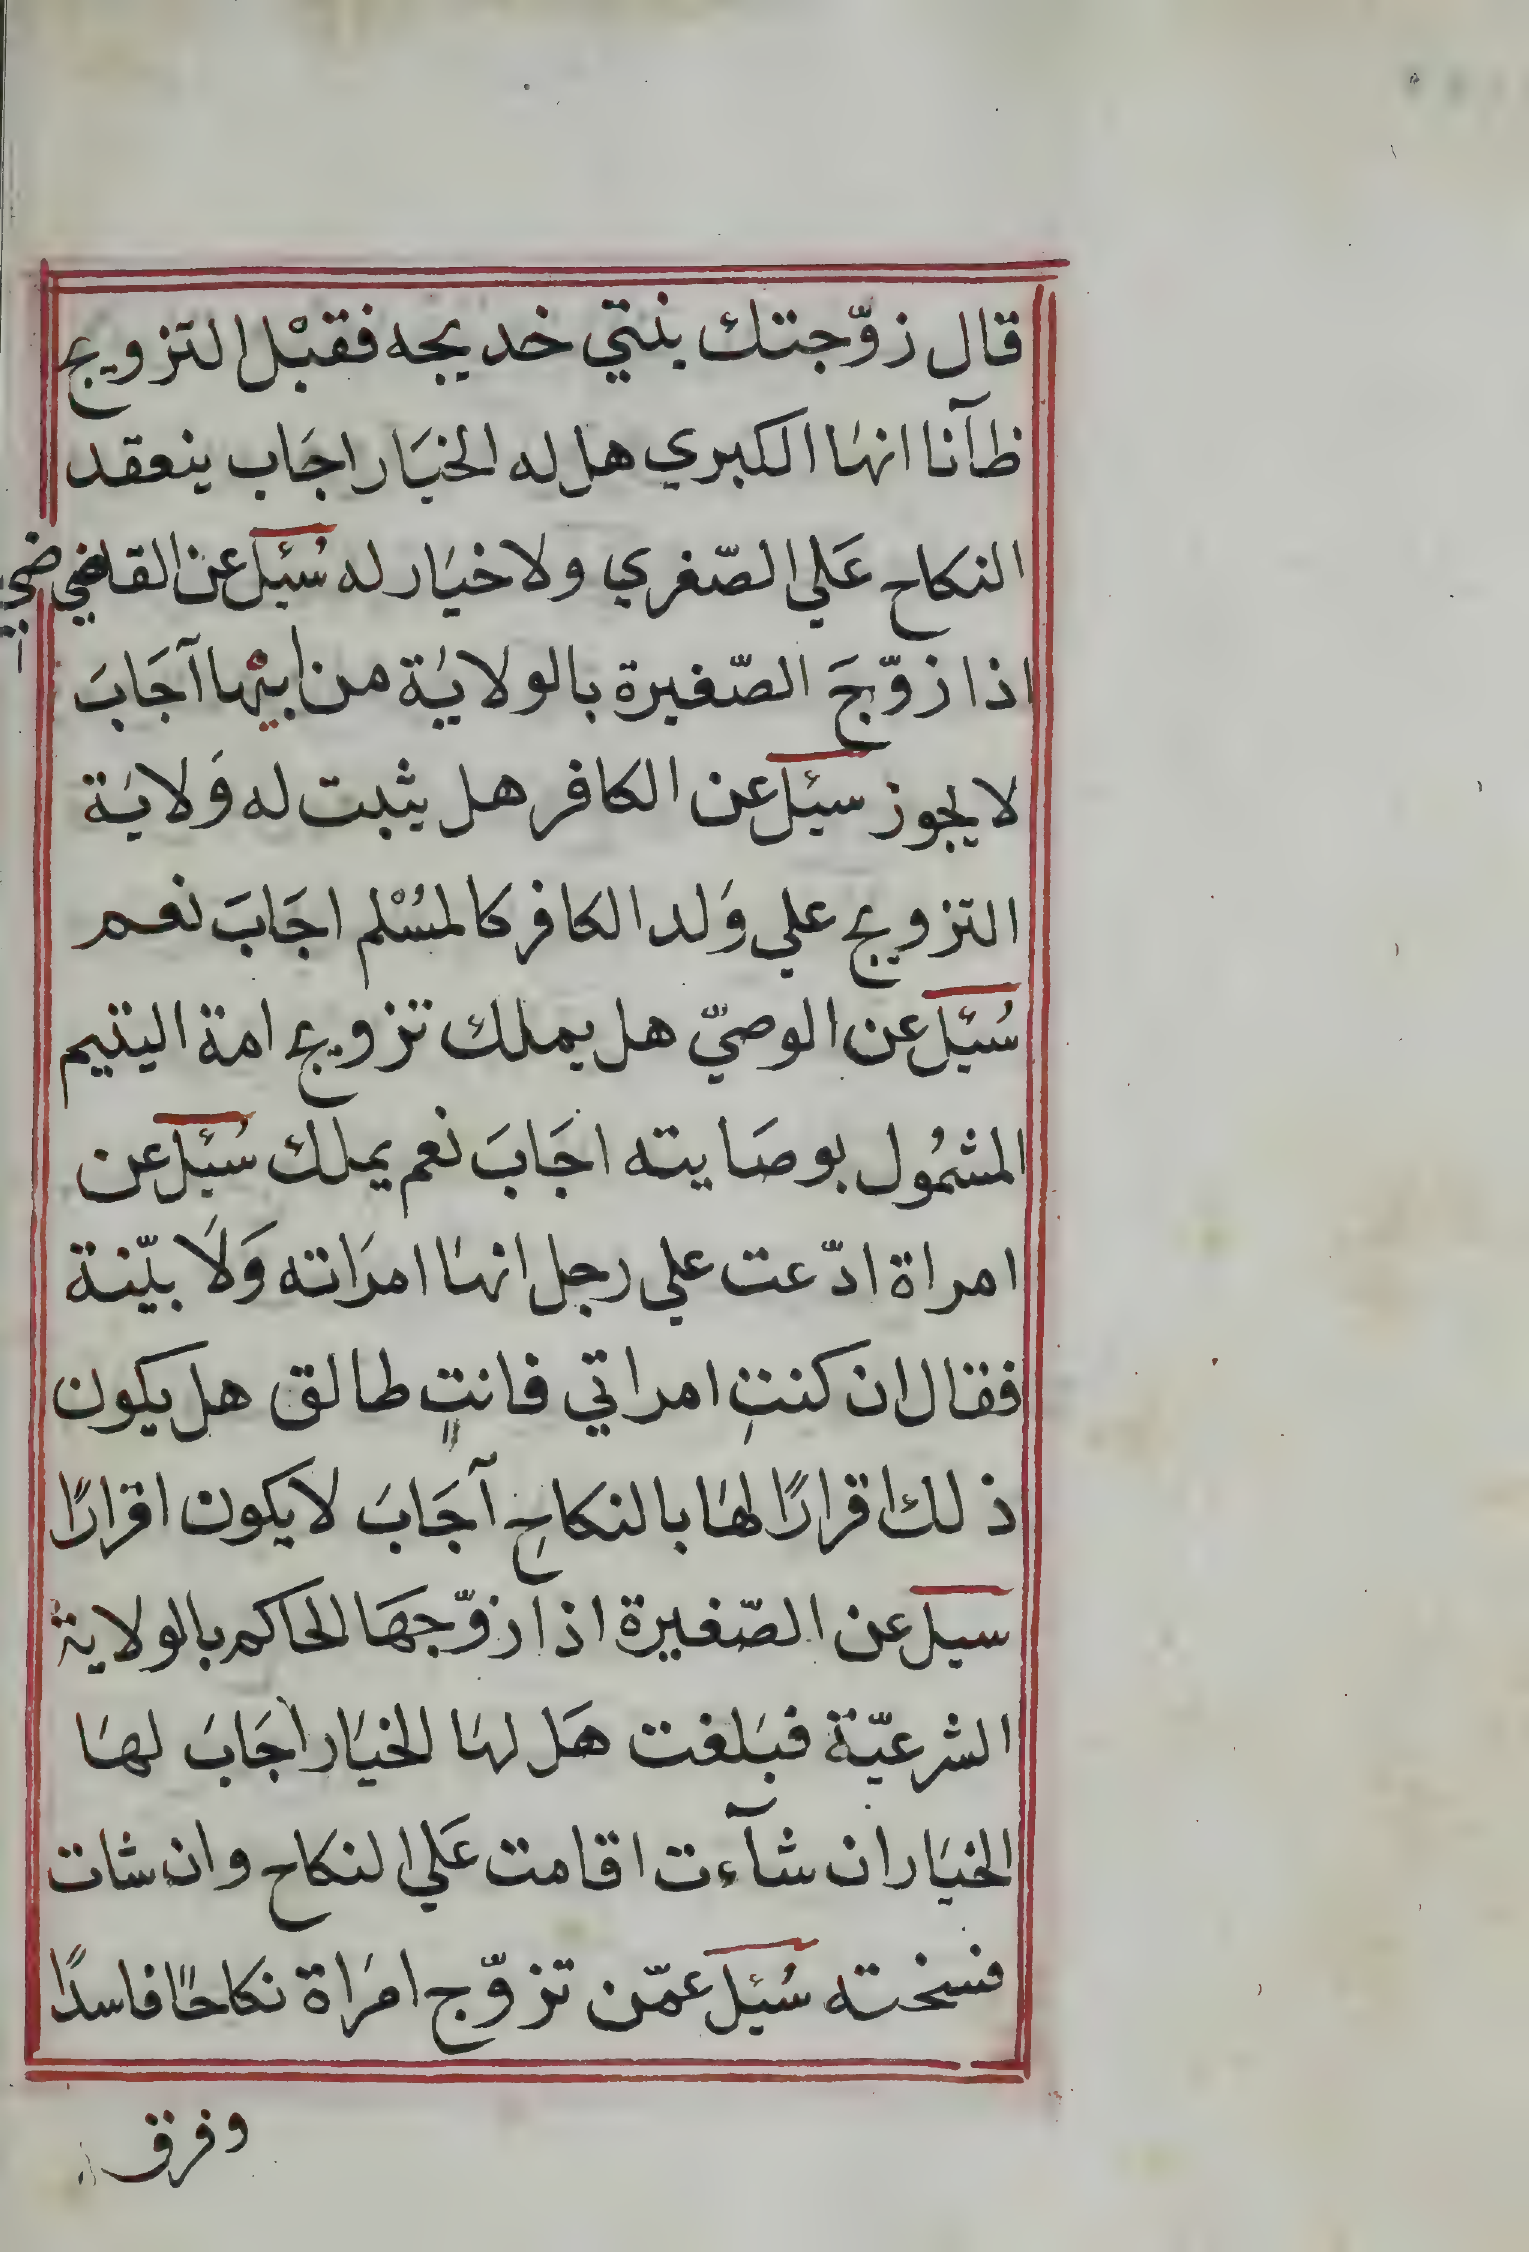 قال زوّجتك بنتي خديجه فقبْل التزويج
ظآنا انهَا الكبري هل له الخيَار اجَاب ينعقد
النكاح عَلي الصّغري ولا خيَار له سُئِل عن القاضي
اذا زوّجَ الصّغيرة بالولايَة من ابيْهَا آجَابَ
لا يجوز سئِل عن الكافر هل يثبت له وَلايَة
التزويج علي وَلد الكافر كالمسُْلم اجَابَ نعم
سُئِل عن الوصيّ هل يملك تزويج امة اليتيم
المشمُول بوصَايته اجَابَ نعم يملك سُئِل عن
امراة ادّعت علي رجل انهَا امرَاته وَلَا بيّنة
فقال ان كنتِ امراتي فانتٍ طالق هل يكون
ذلك اقرارًا لهَا بالنكاحِ آجَابَ لا يكون اقرارًا
سيل عن الصّغيرة اذا زوّجهَا الحاكم بالولاية
الشرعيّة فبَلغت هَل لهَا الخيَار اجَابَ لهَا
الخيَار ان شآءت اقامت عَلي النكاح وان شات
فسخته سُئِل عمّن تزوّج امرَاة نكاحًا فاسدًا
وفرق